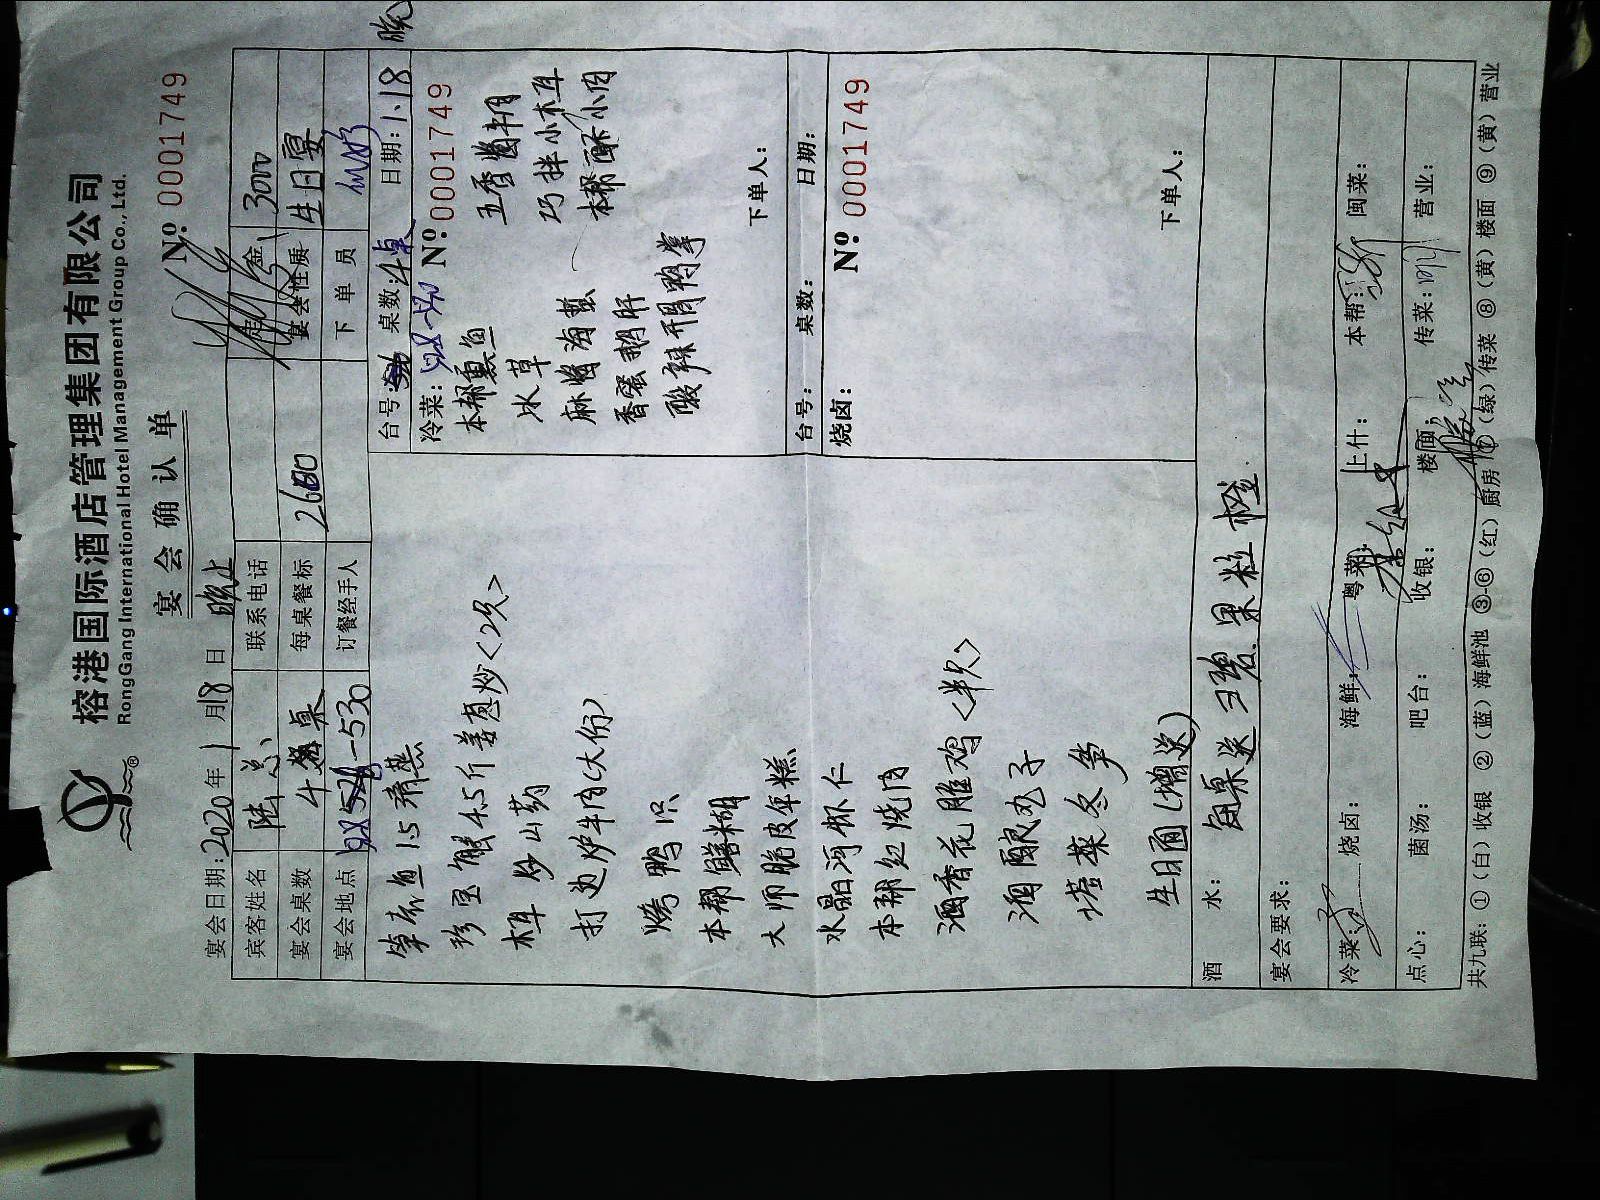 榕港国际酒店管理集团有限公司
RongGang International Hotel Management Group Co., Ltd.
宴会确认单
Nº 0001749
宴会日期:2020年1月18日 晚上
宾客姓名 陆总 联系电话 定金 3000
宴会桌数 桌 每桌餐标 2680 宴会性质 生日宴
宴会地点 528-530 订餐经手人 下单员
台号: 桌数: 桌 日期:1.18 晚
冷菜: Nº:0001749
本帮熏鱼 五香酱牛肉
冰草 巧拌小木耳
麻酱海蜇 本帮酥小肉
香蛋鹅肝
酸辣开胃鸭掌
下单人:
台号: 桌数: 日期:
烧卤: Nº 0001749
下单人:
笋壳鱼1.5斤清蒸
珍宝蟹4.5斤姜葱炒<2只>
木耳炒山药
打边炉牛肉(大份)
烤鸭1只
本帮鳝糊
大师脆皮年糕
水晶河虾仁
本帮红烧肉
酒香花雕鸡<半只>
酒酿丸子
塔菜冬笋
生日面(赠送)
酒水: 每桌送可乐.果粒橙.
宴会要求:
冷菜: 烧卤: 海鲜: 粤菜: 上什: 本帮: 闽菜:
点心: 菌汤: 吧台: 收银: 楼面: 传菜: 营业:
共九联:①(白)收银 ②(蓝)海鲜池 ③-⑥(红)厨房 ⑦(绿)传菜 ⑧(黄)楼面 ⑨(黄)营业